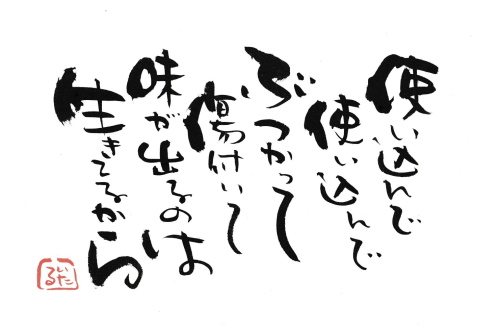 使い込んで
使い込んで
ぶつかって
傷付いて
味が出るのは
生きてるから